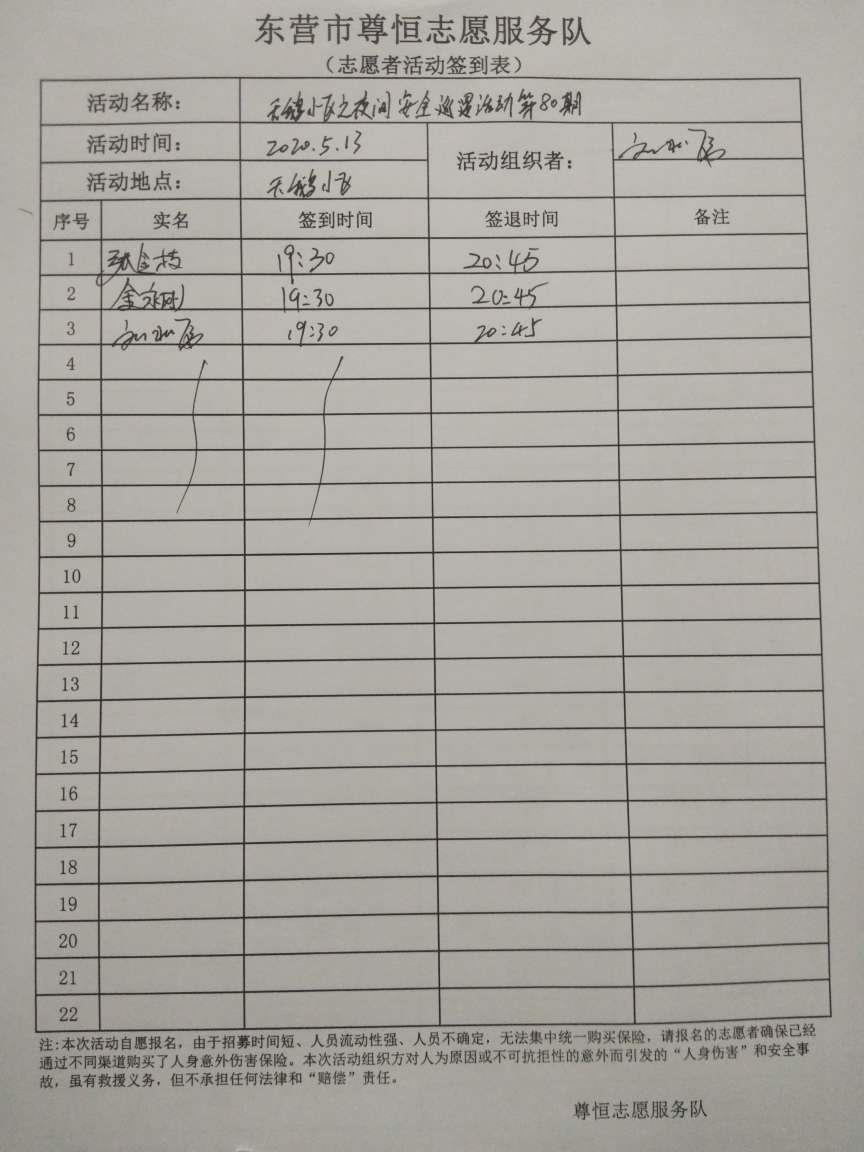 东营市尊恒志愿服务队
（志愿者活动签到表）
活动名称： 天鹅小区之夜间安全巡逻活动第80期
活动时间： 2020.5.13 活动组织者：
活动地点： 天鹅小区
序号 实名 签到时间 签退时间 备注
1 19:30 20:45
2 19:30 20:45
3 19:30 20:45
4
5
6
7
8
9
10
11
12
13
14
15
16
17
18
19
20
21
22
注:本次活动自愿报名，由于招募时间短、人员流动性强、人员不确定，无法集中统一购买保险，请报名的志愿者确保已经
通过不同渠道购买了人身意外伤害保险。本次活动组织方对人为原因或不可抗拒性的意外而引发的“人身伤害”和安全事
故，虽有救援义务，但不承担任何法律和“赔偿”责任。
尊恒志愿服务队